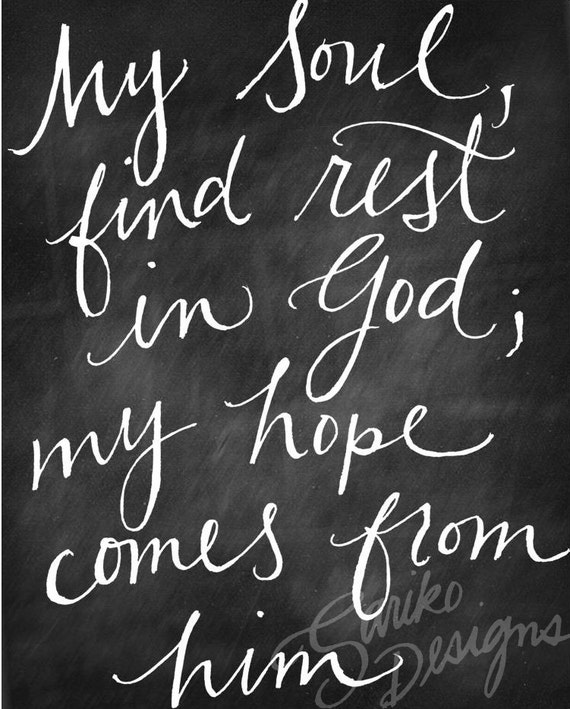 My Soul,
find rest
in God;
my hope
comes from
him
Sariko
Designs